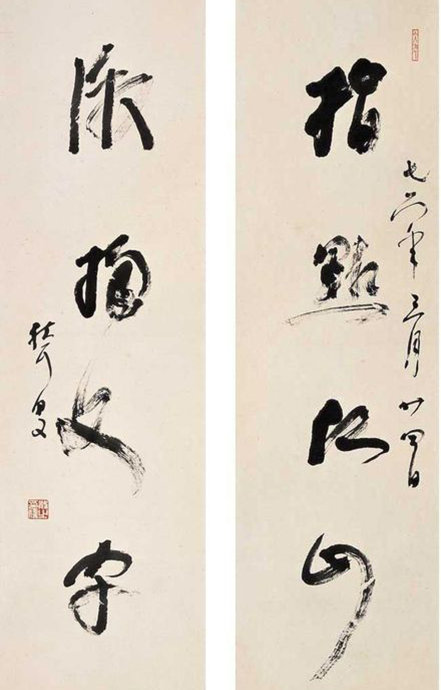 七六年三月廿四日
指點江山
激揚文字